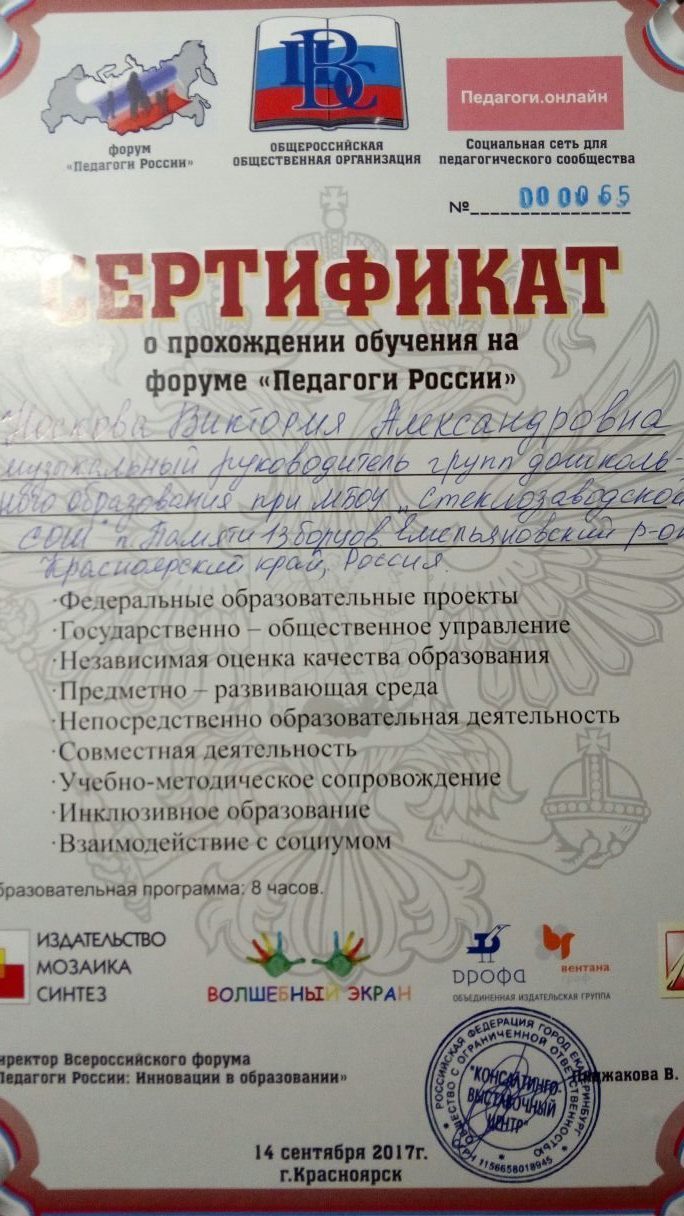 форум
«Педагоги России»
ПВС
ОБЩЕРОССИЙСКАЯ
ОБЩЕСТВЕННАЯ ОРГАНИЗАЦИЯ
Педагоги.онлайн
Социальная сеть для
педагогического сообщества
№ 000065
СЕРТИФИКАТ
о прохождении обучения на
форуме «Педагоги России»
Носкова Виктория Александровна
музыкальный руководитель групп дошколь-
ного образования при МБОУ „Стеклозаводской
СОШ" п. Памяти 13 Борцов Емельяновский р-он
Красноярский край, Россия.
·Федеральные образовательные проекты
·Государственно – общественное управление
·Независимая оценка качества образования
·Предметно – развивающая среда
·Непосредственно образовательная деятельность
·Совместная деятельность
·Учебно-методическое сопровождение
·Инклюзивное образование
·Взаимодействие с социумом
бразовательная программа: 8 часов.
ИЗДАТЕЛЬСТВО
МОЗАИКА
СИНТЕЗ
ВОЛШЕБНЫЙ ЭКРАН
дрофа
вентана
ОБЪЕДИНЕННАЯ ИЗДАТЕЛЬСКАЯ ГРУППА
иректор Всероссийского форума
Педагоги России: Инновации в образовании»
РОССИЙСКАЯ ФЕДЕРАЦИЯ ГОРОД ЕКАТЕРИНБУРГ
ОБЩЕСТВО С ОГРАНИЧЕННОЙ ОТВЕТСТВЕННОСТЬЮ
"КОНСАЛТИНГО-
ВЫСТАВОЧНЫЙ
ЦЕНТР"
1156658018945
В.
14 сентября 2017г.
г.Красноярск